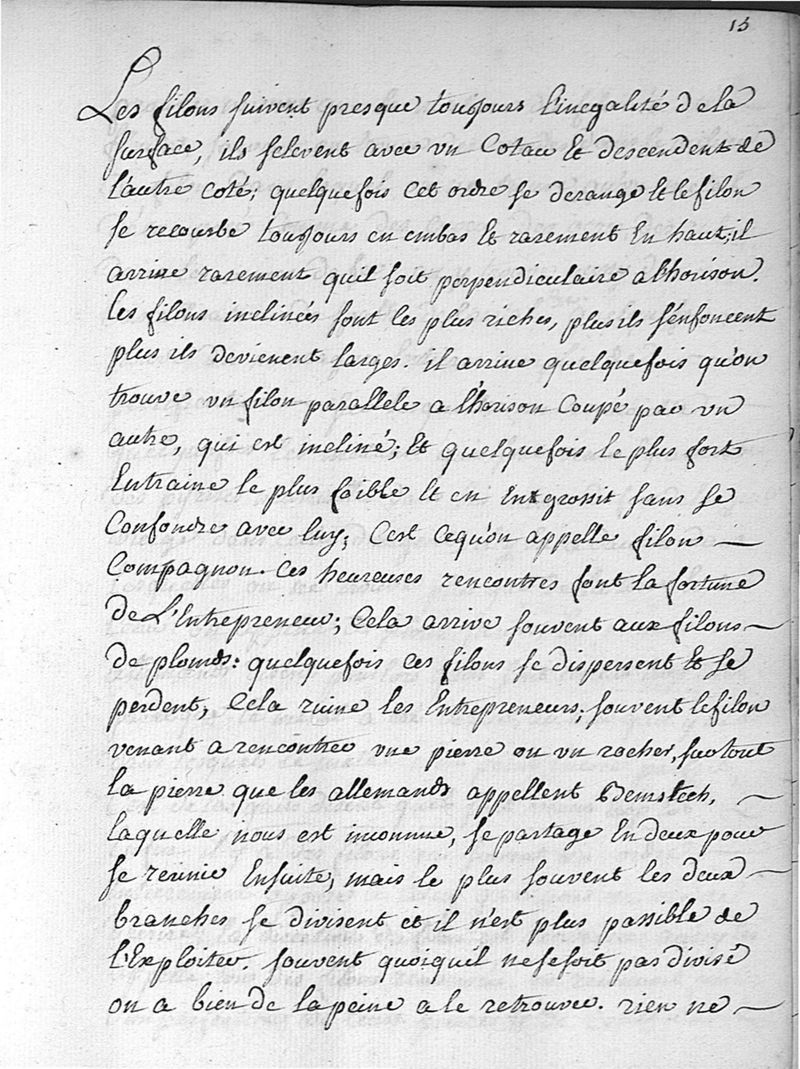 15
Les filons suivent presque toujours l'inegalité de la
surface, ils selevent avec un Cotau Et descendent de
l'autre coté; quelquefois cet ordre se derange Et le filon
se recourbe toujours en embas Et rarement En haut; il
arrive rarement quil soit perpendiculaire a l'horison.
les filons inclinés sont les plus riches, plus ils s'enfoncent
plus ils devienent larges. il arrive quelquefois qu'on
trouve un filon parallele a l'horison Coupé par un
autre, qui est incliné; Et quelquefois le plus fort
Entraine le plus foible Et en Engrossit sans se
Confondre avec luy; C'est cequ'on appelle filon
Compagnon. Ces heureuses rencontres font la fortune
de L'Entrepreneur; Cela arrive souvent aux filons
de plombs: quelquefois ces filons se dispersent Et se
perdent, Cela ruine les Entrepreneurs; souvent le filon
venant a rencontrer une pierre ou un rocher, surtout
la pierre que les allemands appellent Bemstech,
laquelle nous est inconnue, se partage En deux pour
se reunir Ensuite, mais le plus souvent les deux
branches se divisent et il n'est plus possible de
l'Exploiter. souvent quoiquil ne se soit pas divisé
on a bien de la peine a le retrouver. rien ne